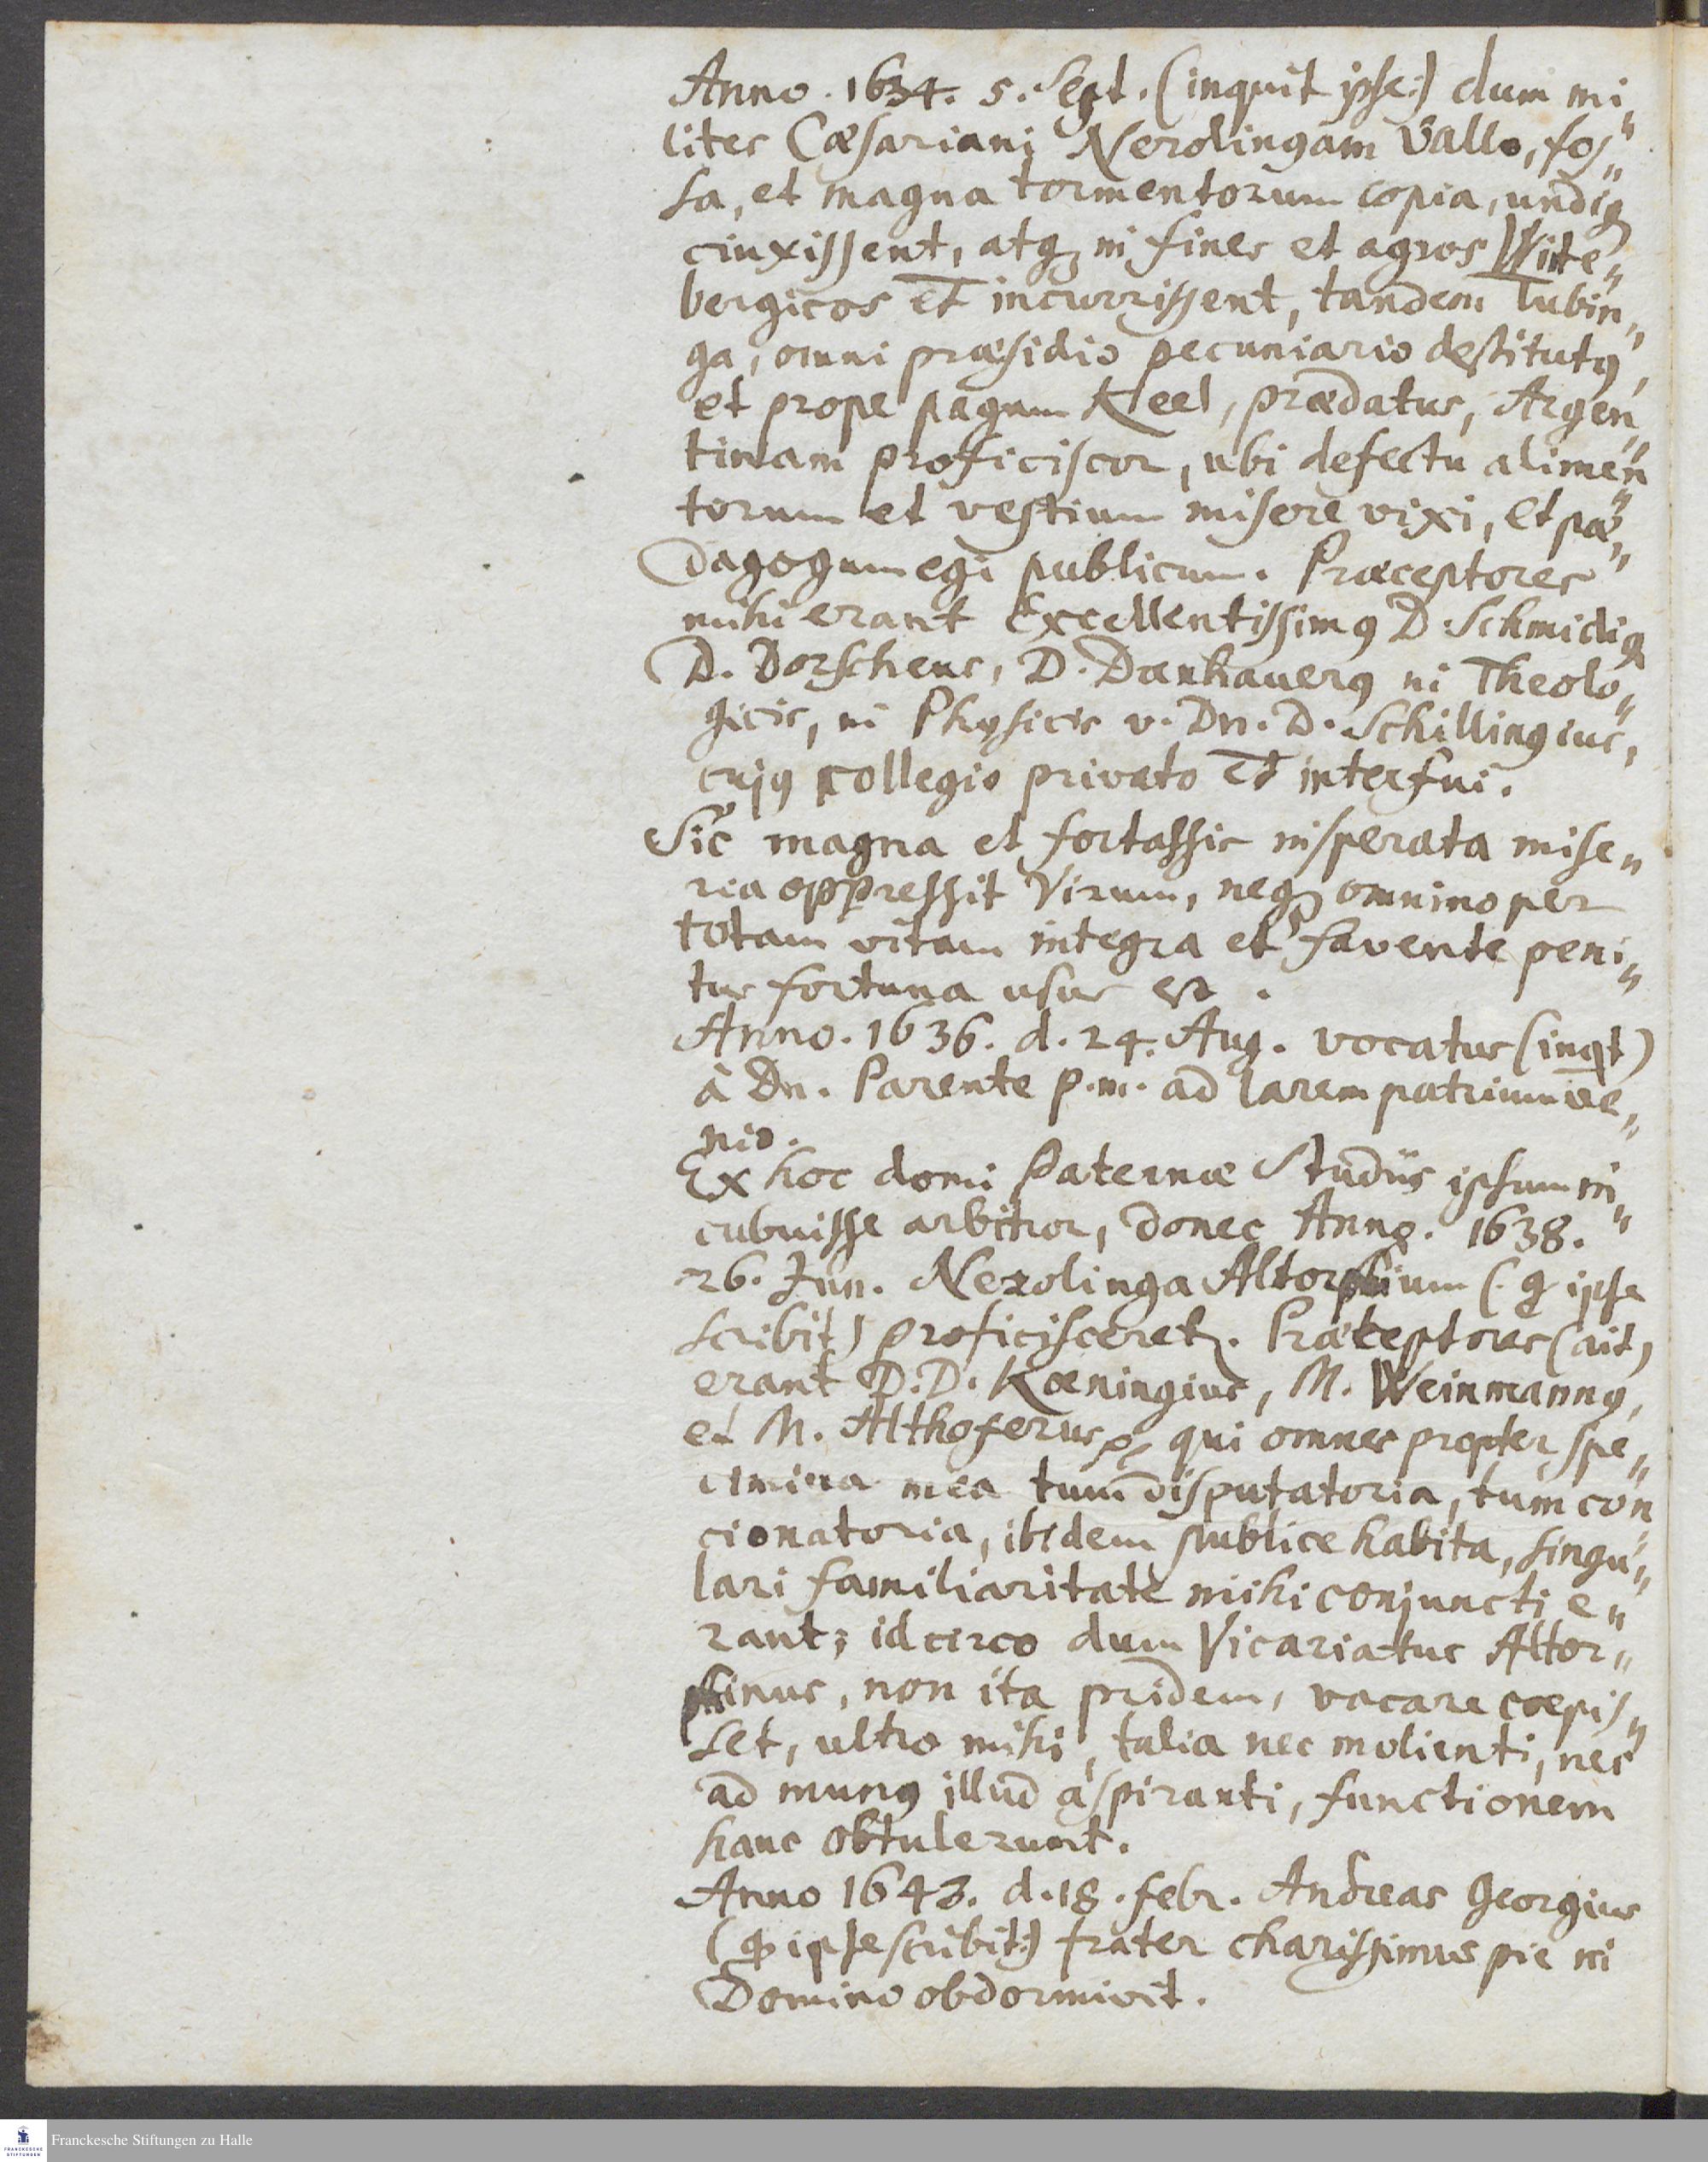 Anno. 1634. 5. Sept. (inquit ipse:) dum mi„
lites Cæsariani Nerolingam Vallo, fos„
sa, et magna tormentorum copia, undiq́
cinxissent, atq́ in fines et agros Wirte„
bergicos et incurrissent, tandem Tubin„
ga, omni præsidio pecuniario destitutꝰ,
et prope pagum Keel, prædatus, Argen„
tinam proficiscor, ubi defectu alimen„
torum et vestium misere vixi, et pæ„
dagogum egi publicum. Præceptores
mihi erant Excellentissimꝰ D. Schmidiꝰ
D. Dorscheus, D. Danhauerꝰ in Theolo„
gicis, in Physicis v. Dn. D. Schillingius,
cujꝰ collegio privato et interfui.
Sic magna et fortassis insperata mise„
ria oppressit Virum, neq́ omnino per
totam vitam integra et favente peni„
tus fortuna usus est.
Anno. 1636. d. 24. Aug. vocatus (inqt)
à Dn. Parente p.m. ad larem patrium ve„
nio.
Ex hoc domi Paternæ Studiis ipsum in„
cubuisse arbitror, donec Anno. 1638.
26. Jun. Nerolinga Altorphium (: ꝙ ipse
scribit) proficisceretr. Præceptores (ait)
erant D.D. Kœningius, M. Weinmannꝰ,
et M. Althoferus, qui omnes propter spe„
cimina mea tum disputatoria, tum con„
cionatoria, ibidem publice habita, singu„
lari familiaritate mihi conjuncti e„
rant; idcirco dum Vicariatus Altor„
phinus, non ita pridem, vacare cœpis„
set, ultro mihi, talia nec molienti, nec
ad munꝰ illud aspiranti, functionem
hanc obtulerunt.
Anno 1643. d. 18. febr. Andreas Georgius
(ꝙ ipse scribit:) frater charissimus pie in
Domino obdormivit.
Franckesche Stiftungen zu Halle
FRANCKESCHE
STIFTUNGEN